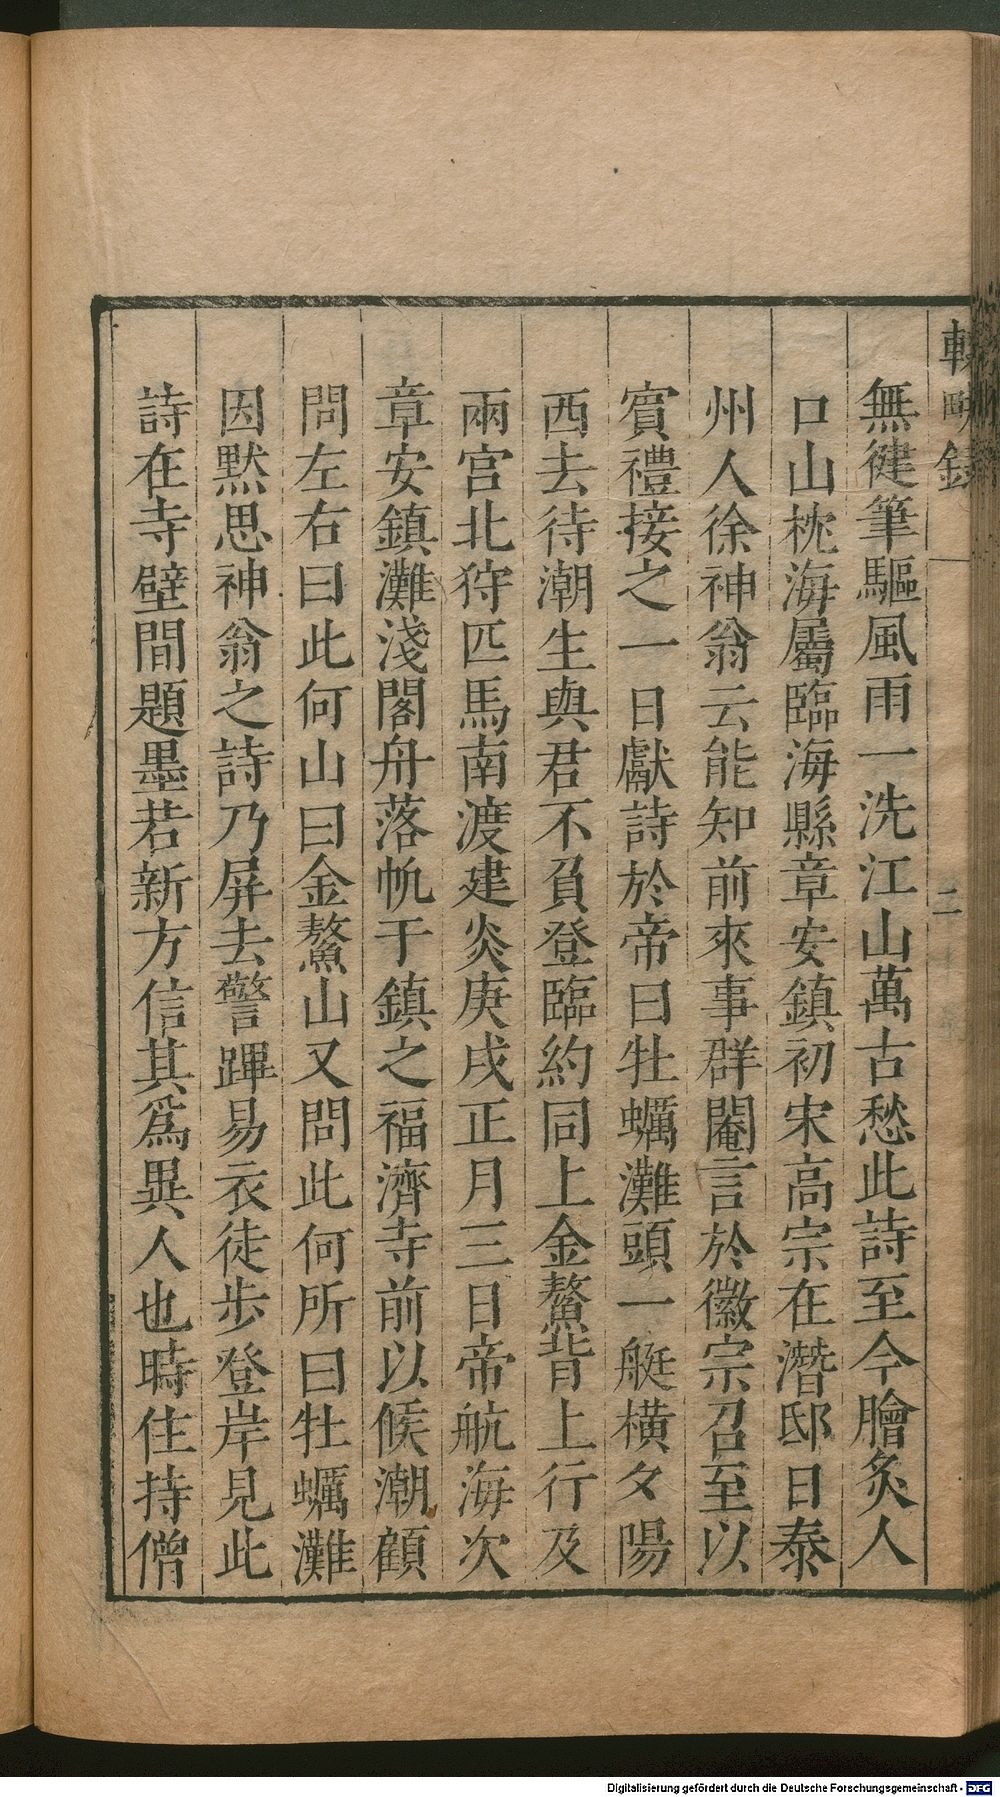 無徤筆驅風雨一洗江山萬古愁此詩至今膾炙人
口山枕海屬臨海縣章安鎮初宋高宗在潛邸日泰
州人徐神翁云能知前來事群閹言於徽宗召至以
賓禮接之一日獻詩於帝曰牡蠣灘頭一艇橫夕陽
西去待潮生與君不負登臨約同上金鰲背上行及
兩宮北狩匹馬南渡建炎庚戌正月三日帝航海次
章安鎮灘淺閣舟落帆于鎮之福濟寺前以候潮顧
問左右曰此何山曰金鰲山又問此何所曰牡蠣灘
因默思神翁之詩乃屏去警蹕易衣徒步登岸見此
詩在寺壁間題墨若新方信其為異人也時住持僧
二
Digitalisierung gefördert durch die Deutsche Forschungsgemeinschaft - DFG